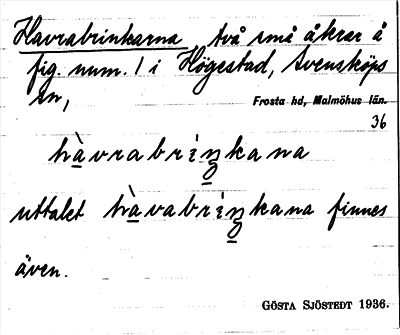 Havrabrinkarna, två små åkrar å
fig. num. 1 i Högestad, Svensköps
sn,
Frosta hd, Malmöhus län.
36
hàvrabriŋkana
uttalet hàvabriŋkana finnes
även.
GÖSTA SJÖSTEDT 1936.